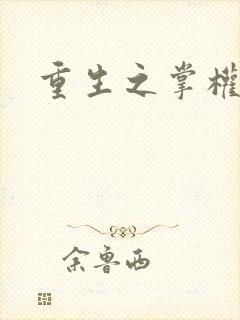 重生之掌權
余魯西